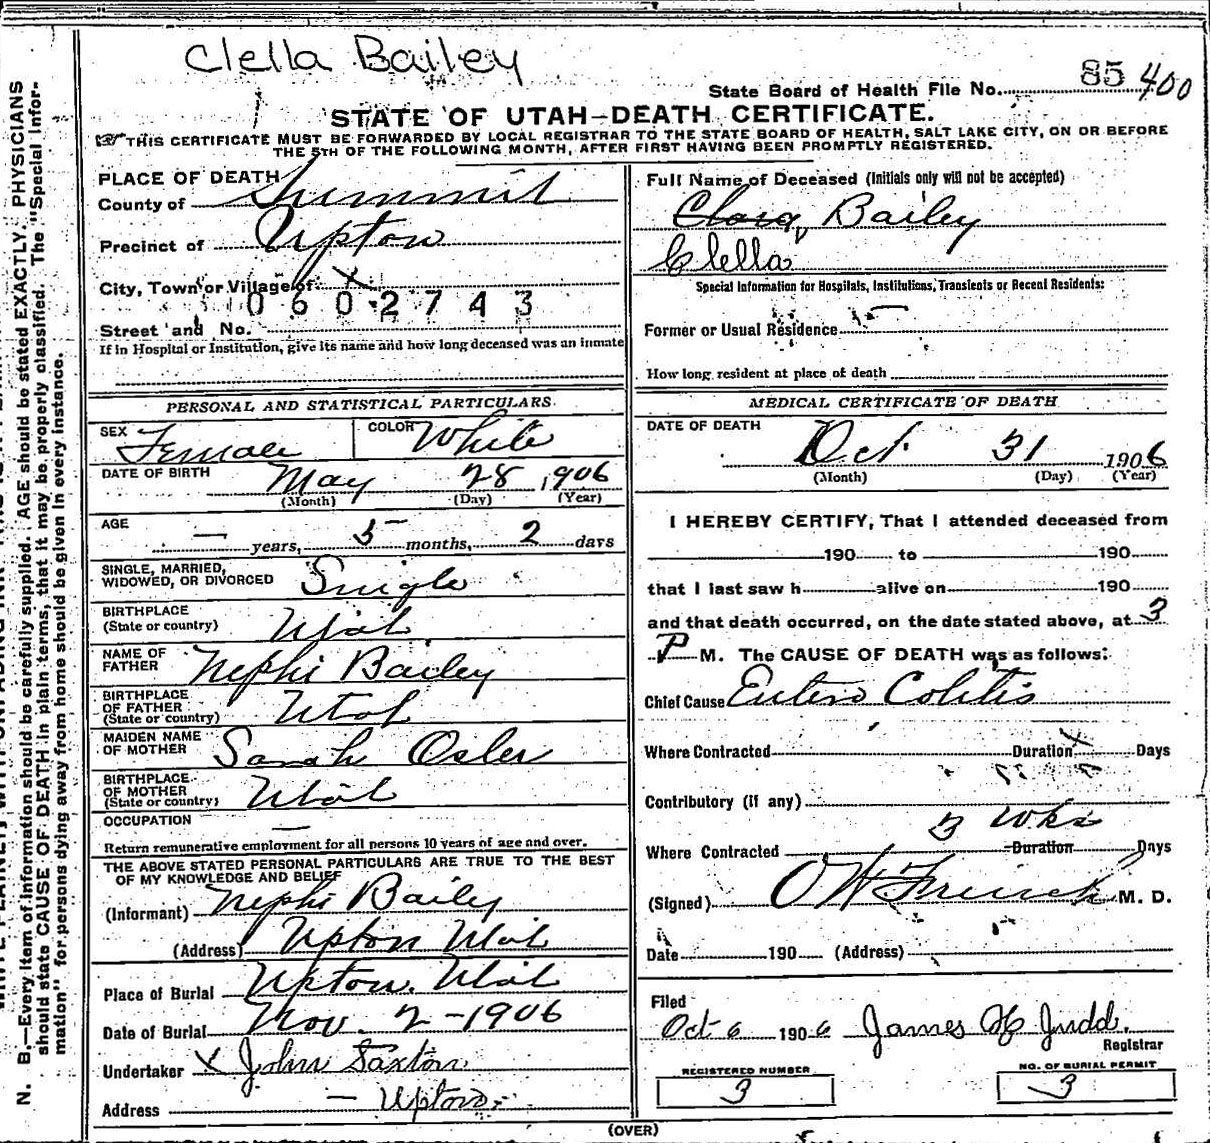 Clella Bailey
State Board of Health File No. 85 400
STATE OF UTAH-DEATH CERTIFICATE.
THIS CERTIFICATE MUST BE FORWARDED BY LOCAL REGISTRAR TO THE STATE BOARD OF HEALTH, SALT LAKE CITY, ON OR BEFORE
THE 5TH OF THE FOLLOWING MONTH, AFTER FIRST HAVING BEEN PROMPTLY REGISTERED.
PLACE OF DEATH
County of Summit
Precinct of Upton
City, Town or Village of X
0602743
Street and No.
If in Hospital or Institution, give its name and how long deceased was an inmate
Full Name of Deceased (Initials only will not be accepted)
Clara, Bailey
Clella
Special Information for Hospitals, Institutions, Transients or Recent Residents:
Former or Usual Residence
How long resident at place of death
PERSONAL AND STATISTICAL PARTICULARS
SEX Female COLOR White
DATE OF BIRTH May 28, 1906
(Month) (Day) (Year)
AGE — years, 5 months, 2 days
SINGLE, MARRIED,
WIDOWED, OR DIVORCED Single
BIRTHPLACE
(State or country) Utah
NAME OF
FATHER Nephi Bailey
BIRTHPLACE
OF FATHER
(State or country) Utah
MAIDEN NAME
OF MOTHER Sarah Osler
BIRTHPLACE
OF MOTHER
(State or country) Utah
OCCUPATION —
Return remunerative employment for all persons 10 years of age and over.
THE ABOVE STATED PERSONAL PARTICULARS ARE TRUE TO THE BEST
OF MY KNOWLEDGE AND BELIEF
(Informant) Nephi Bailey
(Address) Upton Utah
Place of Burial Upton, Utah
Date of Burial Nov. 2 - 1906
Undertaker X John Saxton
Address — Upton
MEDICAL CERTIFICATE OF DEATH
DATE OF DEATH
Oct 31 1906
(Month) (Day) (Year)
I HEREBY CERTIFY, That I attended deceased from
190 to 190
that I last saw h alive on 190
and that death occurred, on the date stated above, at 3
P M. The CAUSE OF DEATH was as follows:
Chief Cause Entero Colitis
Where Contracted Duration Days
Contributory (if any)
3 Wks
Where Contracted Duration Days
(Signed) M. D.
Date 190 (Address)
Filed
Oct 6 1906 James H Judd.
Registrar
REGISTERED NUMBER
3
NO. OF BURIAL PERMIT
3
(OVER)
N. B.—Every item of information should be carefully supplied. AGE should be stated EXACTLY. PHYSICIANS
should state CAUSE OF DEATH in plain terms, that it may be properly classified. The "Special Infor-
mation" for persons dying away from home should be given in every instance.